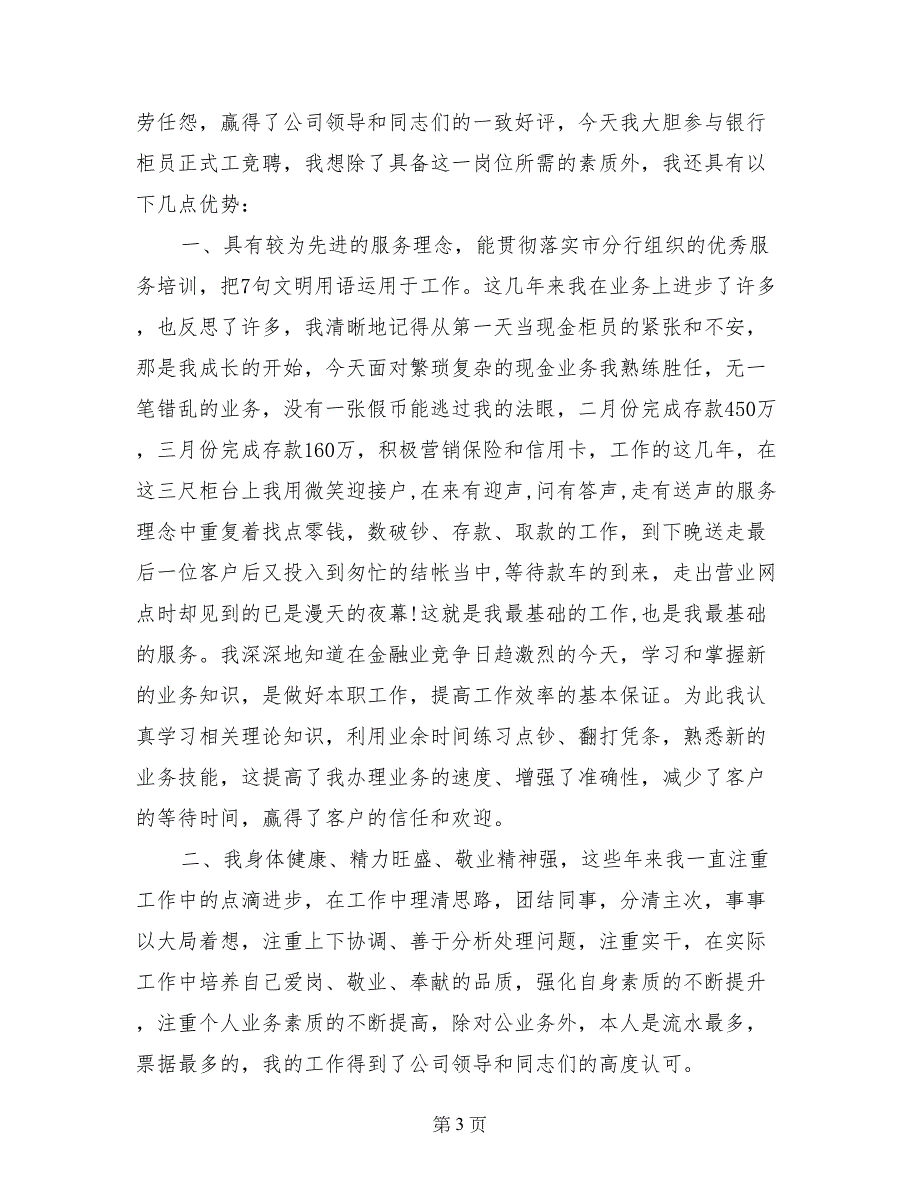 劳任怨，赢得了公司领导和同志们的一致好评，今天我大胆参与银行
柜员正式工竞聘，我想除了具备这一岗位所需的素质外，我还具有以
下几点优势：
一、具有较为先进的服务理念，能贯彻落实市分行组织的优秀服
务培训，把7句文明用语运用于工作。这几年来我在业务上进步了许多
，也反思了许多，我清晰地记得从第一天当现金柜员的紧张和不安，
那是我成长的开始，今天面对繁琐复杂的现金业务我熟练胜任，无一
笔错乱的业务，没有一张假币能逃过我的法眼，二月份完成存款450万
，三月份完成存款160万，积极营销保险和信用卡，工作的这几年，在
这三尺柜台上我用微笑迎接户,在来有迎声,问有答声,走有送声的服务
理念中重复着找点零钱，数破钞、存款、取款的工作，到下晚送走最
后一位客户后又投入到匆忙的结帐当中,等待款车的到来，走出营业网
点时却见到的已是漫天的夜幕!这就是我最基础的工作,也是我最基础
的服务。我深深地知道在金融业竞争日趋激烈的今天，学习和掌握新
的业务知识，是做好本职工作，提高工作效率的基本保证。为此我认
真学习相关理论知识，利用业余时间练习点钞、翻打凭条，熟悉新的
业务技能，这提高了我办理业务的速度、增强了准确性，减少了客户
的等待时间，赢得了客户的信任和欢迎。
二、我身体健康、精力旺盛、敬业精神强，这些年来我一直注重
工作中的点滴进步，在工作中理清思路，团结同事，分清主次，事事
以大局着想，注重上下协调、善于分析处理问题，注重实干，在实际
工作中培养自己爱岗、敬业、奉献的品质，强化自身素质的不断提升
，注重个人业务素质的不断提高，除对公业务外，本人是流水最多，
票据最多的，我的工作得到了公司领导和同志们的高度认可。
第 3 页